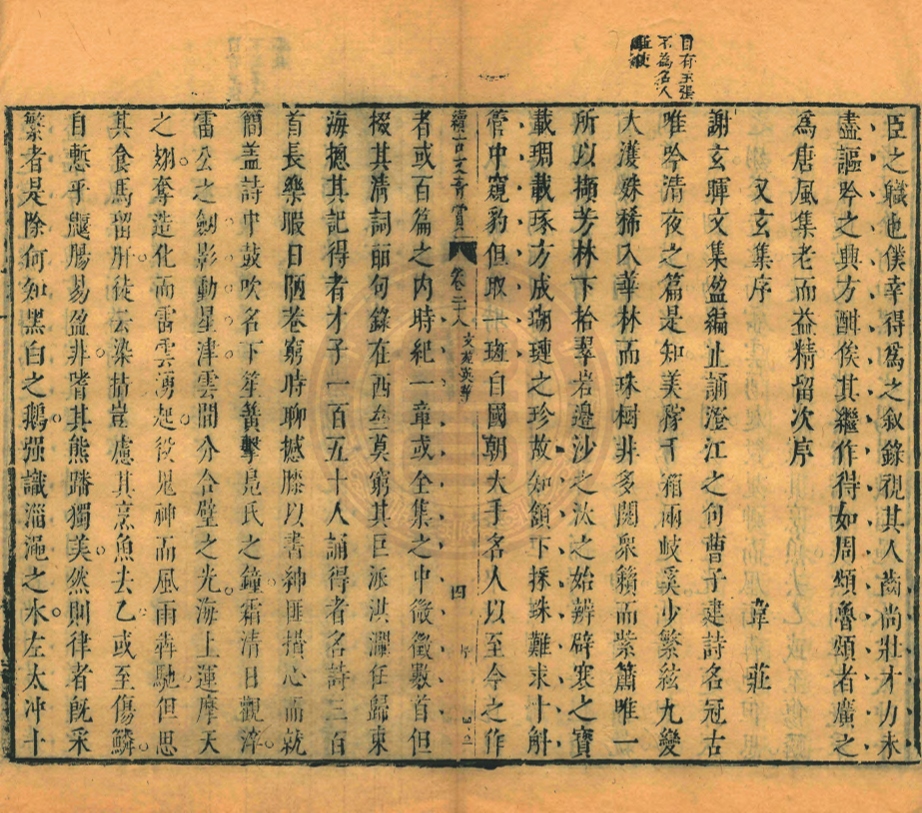 目有主張
不爲名人
臣之職也僕幸得爲之叙錄視其人齒尚壯才力未
盡謳吟之興方酣俟其繼作得如周頌魯頌者廣之
爲唐風集老而益精留次序
又玄集序 韋莊
謝玄暉文集盈編止誦澄江之句曹子建詩名冠古
唯吟清夜之篇是知美稼千箱兩岐奚少繁絃九變
大濩姝稀入華林而珠樹非多閱衆籟而紫簫唯一
所以擷芳林下拾翠岩邊沙之汰之始辨辟寒之寶
載琱載琢方成瑚璉之珍故知頷下採珠難求十斛
管中窺豹但取一斑自國朝大手名人以至今之作
續古文奇賞 卷二十八 文苑英華 四
者或百篇之內時紀一章或全集之中微徵數首但
掇其清詞麗句錄在西莫窮其巨派洪瀾任歸東
海摠其記得者才子一百五十人誦得者名詩三百
首長樂暇日陋巷窮時聊撼膝以書紳匪攢心而就
簡盖詩中鼓吹名下笙簧擊鳧氏之鐘霜清日觀淬
雷公之劔影動星津雲間分合璧之光海上運摩天
之翅奪造化而雷雲湧起役鬼神而風雨犇馳但思
其食馬留肝徒云染指豈慮其烹魚去乙或至傷鱗
自慙乎鼴腸易盈非嗜其熊蹯獨美然則律者旣采
繁者是除何知黑白之鵝强識淄澠之水左太冲十